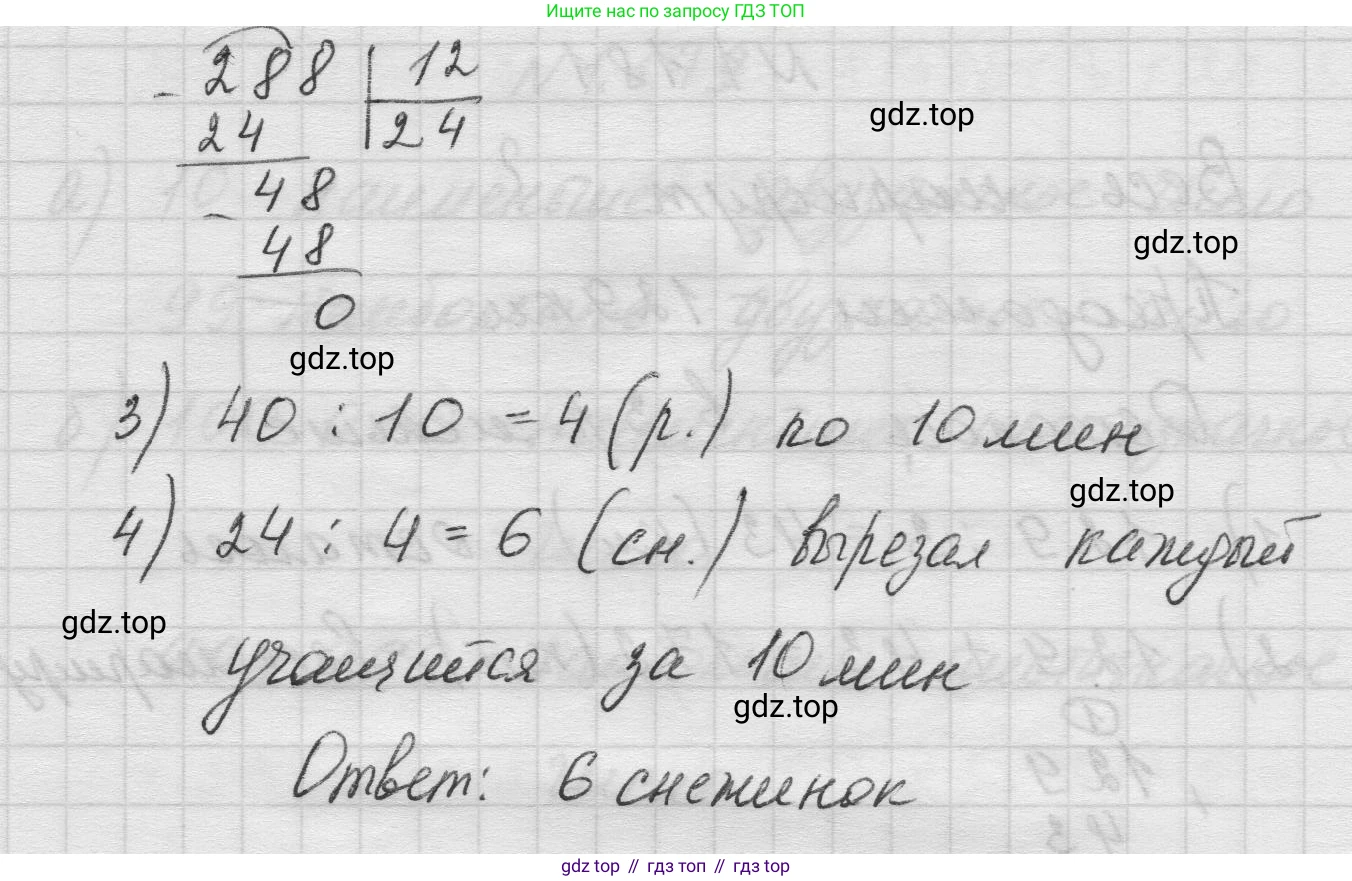 Ищите нас по запросу ГДЗ ТОП
- 288 | 12
24 | 24
gdz.top
- 48
48
gdz.top
0
gdz.top
3) 40 : 10 = 4 (р.) по 10 мин
gdz.top
4) 24 : 4 = 6 (сн.) вырезал каждый
gdz.top
учащийся за 10 мин
gdz.top
Ответ: 6 снежинок
gdz.top // гдз топ // гдз top